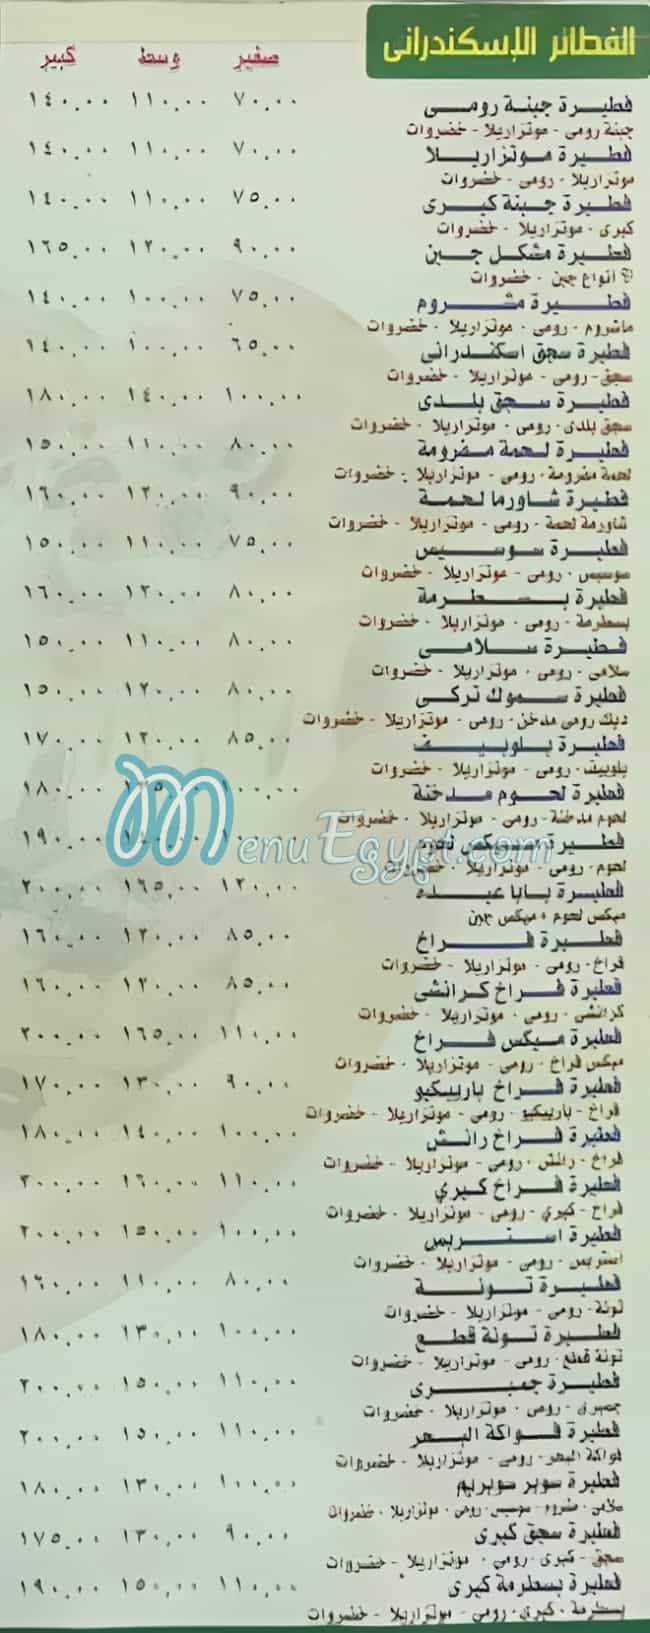 الفطائر الإسكندرانى
صغير وسط كبير
فطيرة جبنة رومى ٧٠.٠٠ ١١٠.٠٠ ١٤٠.٠٠
جبنة رومى - موتزاريلا - خضروات
فطيرة موتزاريلا ٧٠.٠٠ ١١٠.٠٠ ١٤٠.٠٠
موتزاريلا - رومى - خضروات
فطيرة جبنة كيرى ٧٥.٠٠ ١١٠.٠٠ ١٤٠.٠٠
كيرى - موتزاريلا - خضروات
فطيرة مشكل جبن ٩٠.٠٠ ١٢٠.٠٠ ١٦٥.٠٠
انواع جبن - خضروات
فطيرة مشروم ٧٥.٠٠ ١٠٠.٠٠ ١٤٠.٠٠
ماشروم - رومى - موتزاريلا - خضروات
فطيرة سجق اسكندرانى ٦٥.٠٠ ١٠٠.٠٠ ١٤٠.٠٠
سجق - رومى - موتزاريلا - خضروات
فطيرة سجق بلدى ١٠٠.٠٠ ١٤٠.٠٠ ١٨٠.٠٠
سجق بلدى - رومى - موتزاريلا - خضروات
فطيرة لحمة مفرومة ٨٠.٠٠ ١١٠.٠٠ ١٥٠.٠٠
لحمة مفرومة - رومى - موتزاريلا - خضروات
فطيرة شاورما لحمة ٩٠.٠٠ ١٢٠.٠٠ ١٦٠.٠٠
شاورمة لحمة - رومى - موتزاريلا - خضروات
فطيرة سوسيس ٧٥.٠٠ ١١٠.٠٠ ١٥٠.٠٠
سوسيس - رومى - موتزاريلا - خضروات
فطيرة بسطرمة ٨٠.٠٠ ١٢٠.٠٠ ١٦٠.٠٠
بسطرمة - رومى - موتزاريلا - خضروات
فطيرة سلامى ٨٠.٠٠ ١١٠.٠٠ ١٥٠.٠٠
سلامى - رومى - موتزاريلا - خضروات
فطيرة سموك تركى ٨٠.٠٠ ١٢٠.٠٠ ١٥٠.٠٠
ديك رومى مدخن - رومى - موتزاريلا - خضروات
فطيرة بلوبيف ٨٥.٠٠ ١٢٠.٠٠ ١٧٠.٠٠
بلوبيف - رومى - موتزاريلا - خضروات
فطيرة لحوم مدخنة ١٠٠.٠٠ ١٨٠.٠٠
لحوم مدخنة - رومى - موتزاريلا - خضروات
فطيرة ميكس لحوم ١٤٠.٠٠ ١٩٠.٠٠
لحوم - رومى - موتزاريلا - خضروات
MenuEgypt.com
فطيرة بابا عبده ١٢٠.٠٠ ١٦٥.٠٠ ٢٠٠.٠٠
ميكس لحوم + ميكس جبن
فطيرة فراخ ٨٥.٠٠ ١٢٠.٠٠ ١٦٠.٠٠
فراخ - رومى - موتزاريلا - خضروات
فطيرة فراخ كرانشى ٨٥.٠٠ ١٢٠.٠٠ ١٦٠.٠٠
كرانشى - رومى - موتزاريلا - خضروات
فطيرة ميكس فراخ ١١٠.٠٠ ١٦٥.٠٠ ٢٠٠.٠٠
ميكس فراخ - رومى - موتزاريلا - خضروات
فطيرة فراخ باربيكيو ٩٠.٠٠ ١٣٠.٠٠ ١٧٠.٠٠
فراخ - باربيكيو - رومى - موتزاريلا - خضروات
فطيرة فراخ رانش ١٠٠.٠٠ ١٤٠.٠٠ ١٨٠.٠٠
فراخ - رانش - رومى - موتزاريلا - خضروات
فطيرة فراخ كيري ١١٠.٠٠ ١٦٠.٠٠ ٢٠٠.٠٠
فراخ - كيري - رومى - موتزاريلا - خضروات
فطيرة استربس ١٠٠.٠٠ ١٥٠.٠٠ ٢٠٠.٠٠
استربس - رومى - موتزاريلا - خضروات
فطيرة تونة ٨٠.٠٠ ١١٠.٠٠ ١٦٠.٠٠
تونة - رومى - موتزاريلا - خضروات
فطيرة تونة قطع ١٠٠.٠٠ ١٣٠.٠٠ ١٨٠.٠٠
تونة قطع - رومى - موتزاريلا - خضروات
فطيرة جمبرى ١١٠.٠٠ ١٥٠.٠٠ ٢٠٠.٠٠
جمبرى - رومى - موتزاريلا - خضروات
فطيرة فواكة البحر ١١٠.٠٠ ١٥٠.٠٠ ٢٠٠.٠٠
فواكة البحر - رومى - موتزاريلا - خضروات
فطيرة سوبر سوبريم ١٠٠.٠٠ ١٣٠.٠٠ ١٨٠.٠٠
سلامى - مشروم - سوسيس - رومى - موتزاريلا - خضروات
فطيرة سجق كيرى ٩٠.٠٠ ١٣٠.٠٠ ١٧٥.٠٠
سجق - كيرى - رومى - موتزاريلا - خضروات
فطيرة بسطرمة كيرى ١١٠.٠٠ ١٥٠.٠٠ ١٩٠.٠٠
بسطرمة - كيرى - رومى - موتزاريلا - خضروات